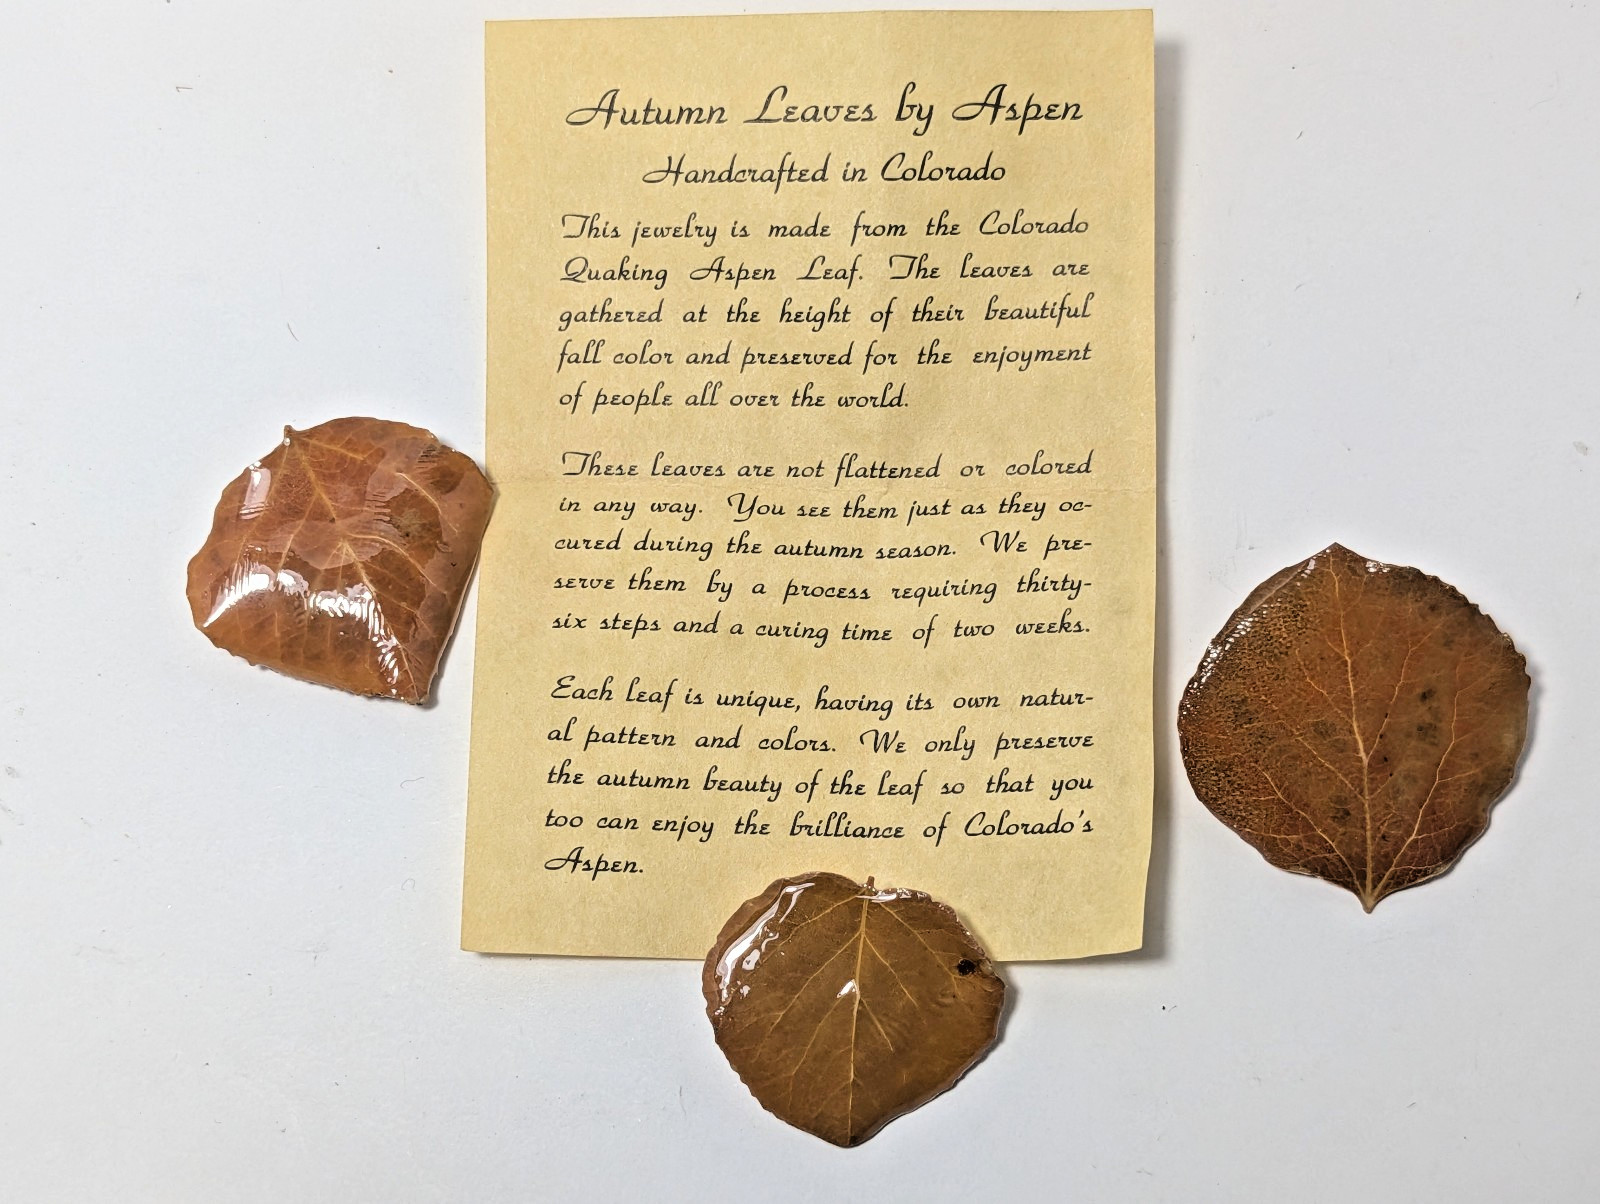 Autumn Leaves by Aspen
Handcrafted in Colorado
This jewelry is made from the Colorado
Quaking Aspen Leaf. The leaves are
gathered at the height of their beautiful
fall color and preserved for the enjoyment
of people all over the world.
These leaves are not flattened or colored
in any way. You see them just as they oc-
cured during the autumn season. We pre-
serve them by a process requiring thirty-
six steps and a curing time of two weeks.
Each leaf is unique, having its own natur-
al pattern and colors. We only preserve
the autumn beauty of the leaf so that you
too can enjoy the brilliance of Colorado's
Aspen.